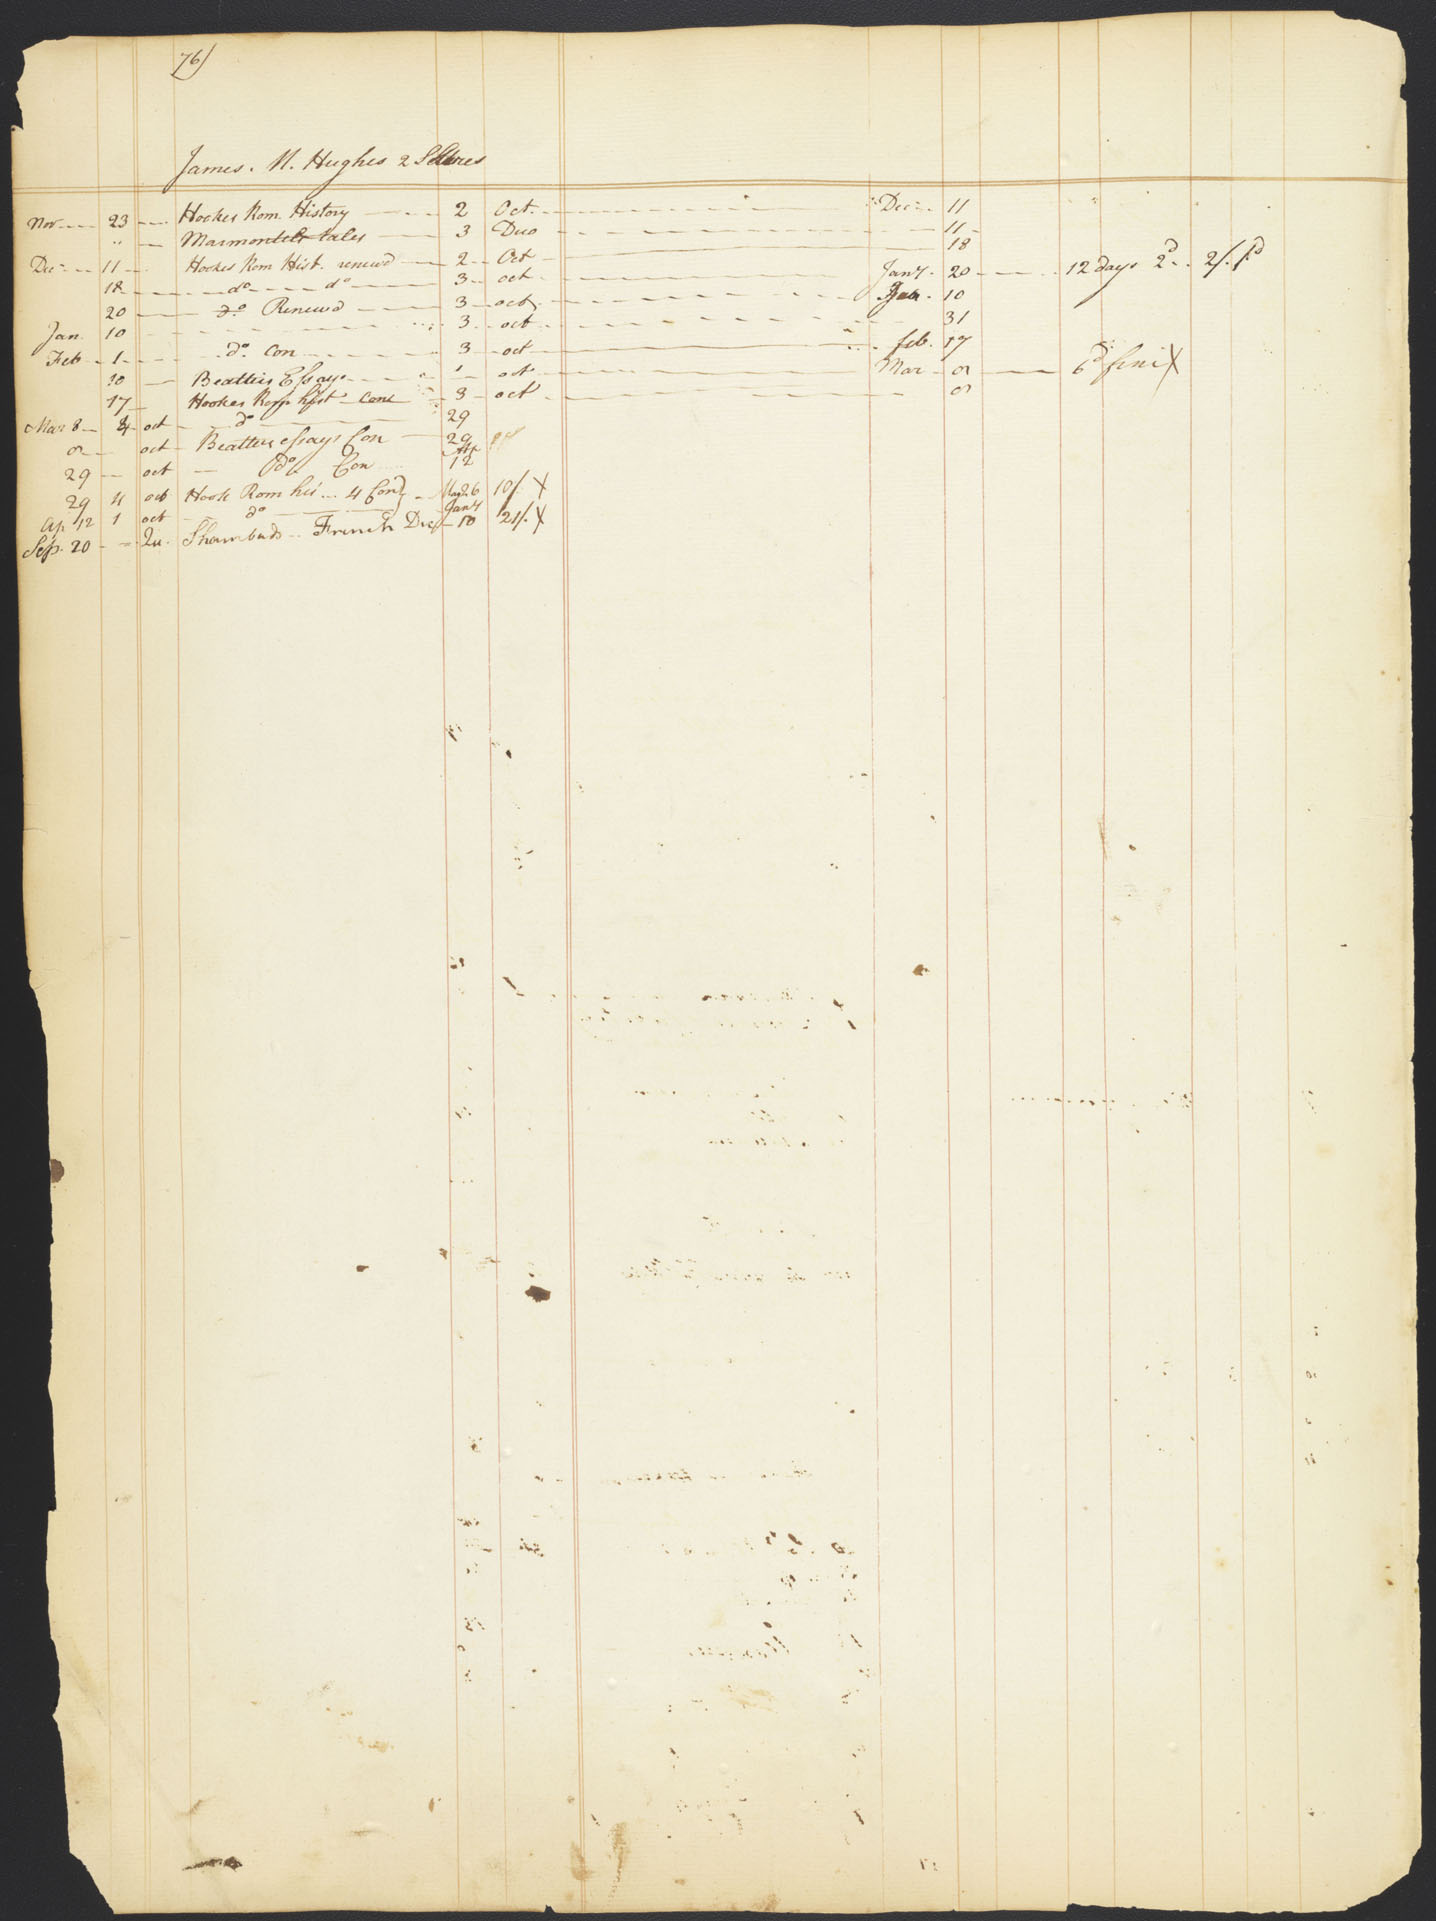 76)
James. N. Hughes 2 Shares
Nov 23 Hookes Rom. History 2 Oct. Dec 11
" Marmontels tales 3 Duo 11
Dec 11 Hookes Rom Hist. renewd 2 Oct 18
18 do do 3 oct Jany. 20 12 days 2d 2/. pd
20 do Renewd 3 oct Jan. 10
Jan 10 3 oct 31
Feb 1 do. Con 3 oct feb. 17
10 Beatties Essays 1 oct Mar 8 6d fine X
17 Hookes Rom hist Cone 3 oct 8
Mar 8 4 oct do 29
8 oct Beatties essays Con 29
29 oct do Con Ap 12
29 4 oct Hook Rom his 4 Cond May 26 10/. X
Ap 12 1 oct do
Sep. 20 Qu. Shambuds French Dic Jany 10 21/. X